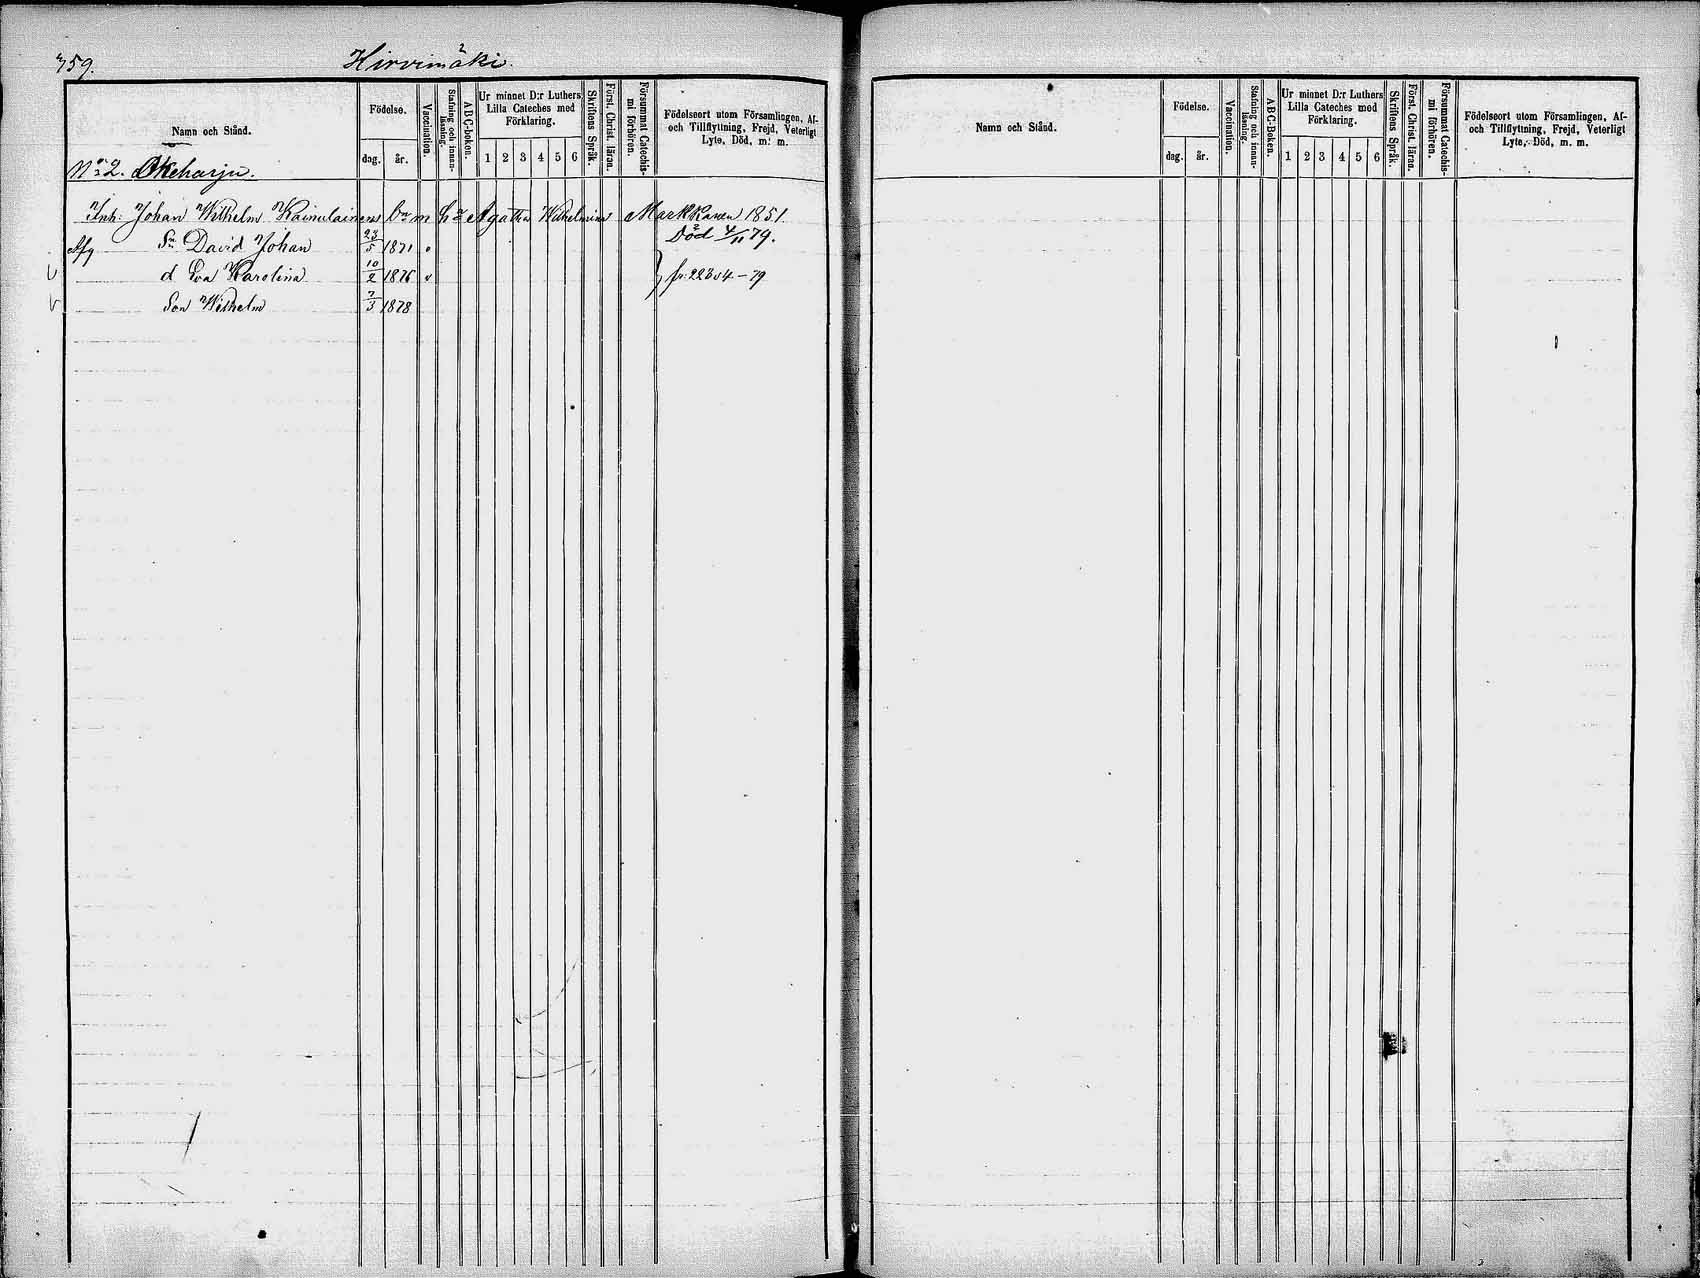 759. Hirvimäki
Namn och Stånd.
Födelse.
dag. år.
Vaccination.
Stafning och innan-läsning.
ABC-boken.
Ur minnet D:r Luthers Lilla Cateches med Förklaring.
1 2 3 4 5 6
Skriftens Språk.
Först. Christ. läran.
Försummat Catechis-mi förhören.
Födelseort utom Församlingen, Af-
och Tillflyttning, Frejd, Veterligt
Lyte, Död, m. m.
No 2. Okeharju.
Inh: Johan Wilhelm Kainulainens Bn m h Agatha Wilhelmina Markkanen 1851.
Afg Sn David Johan 23/5 1871 Död 4/11 79.
d Eva Karolina 10/2 1876 v } fr. 2230 4-79
Son Wilhelm 7/3 1878
Namn och Stånd.
Födelse.
dag. år.
Vaccination.
Stafning och innan-läsning.
ABC-Boken.
Ur minnet D:r Luthers Lilla Cateches med Förklaring.
1 2 3 4 5 6
Skriftens Språk.
Först. Christ. läran.
Försummat Catechis-mi förhören.
Födelseort utom Församlingen, Af-
och Tillflyttning, Frejd, Veterligt
Lyte, Död, m. m.